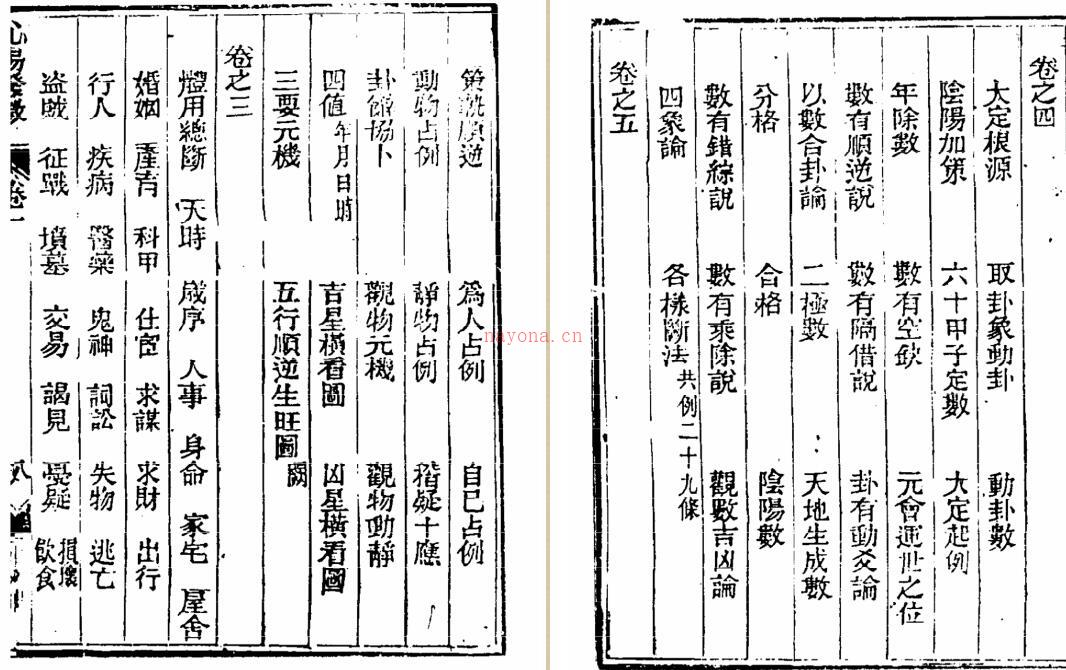 策軌順逆 爲人占例 自己占例
動物占例 靜物占例 稽疑十應
卦 協卜 觀物元機 觀物動靜
四値年月日時 吉星橫看圖 凶星橫看圖
三要元機 五行順逆生旺圖闕
卷之三
體用總斷 天時 歲序 人事 身命 家宅 屋舍
婚姻 產育 科甲 仕宦 求謀 求財 出行
行人 疾病 醫藥 鬼神 詞訟 失物 逃亡
盗賊 征戰 墳墓 交易 謁見 憂疑 損壞飲食
心易發微 卷一 八
卷之四
大定根源 取卦象動卦 動卦數
陰陽加策 六十甲子定數 大定起例
年除數 數有空欽 元會運世之位
數有順逆說 數有隔借說 卦有動爻論
以數合卦論 二極數 天地生成數
分格 合格 陰陽數
數有錯綜說 數有乘除說 觀數吉凶論
四象論 各樣斷法共例二十九條
卷之五
nayona.cn